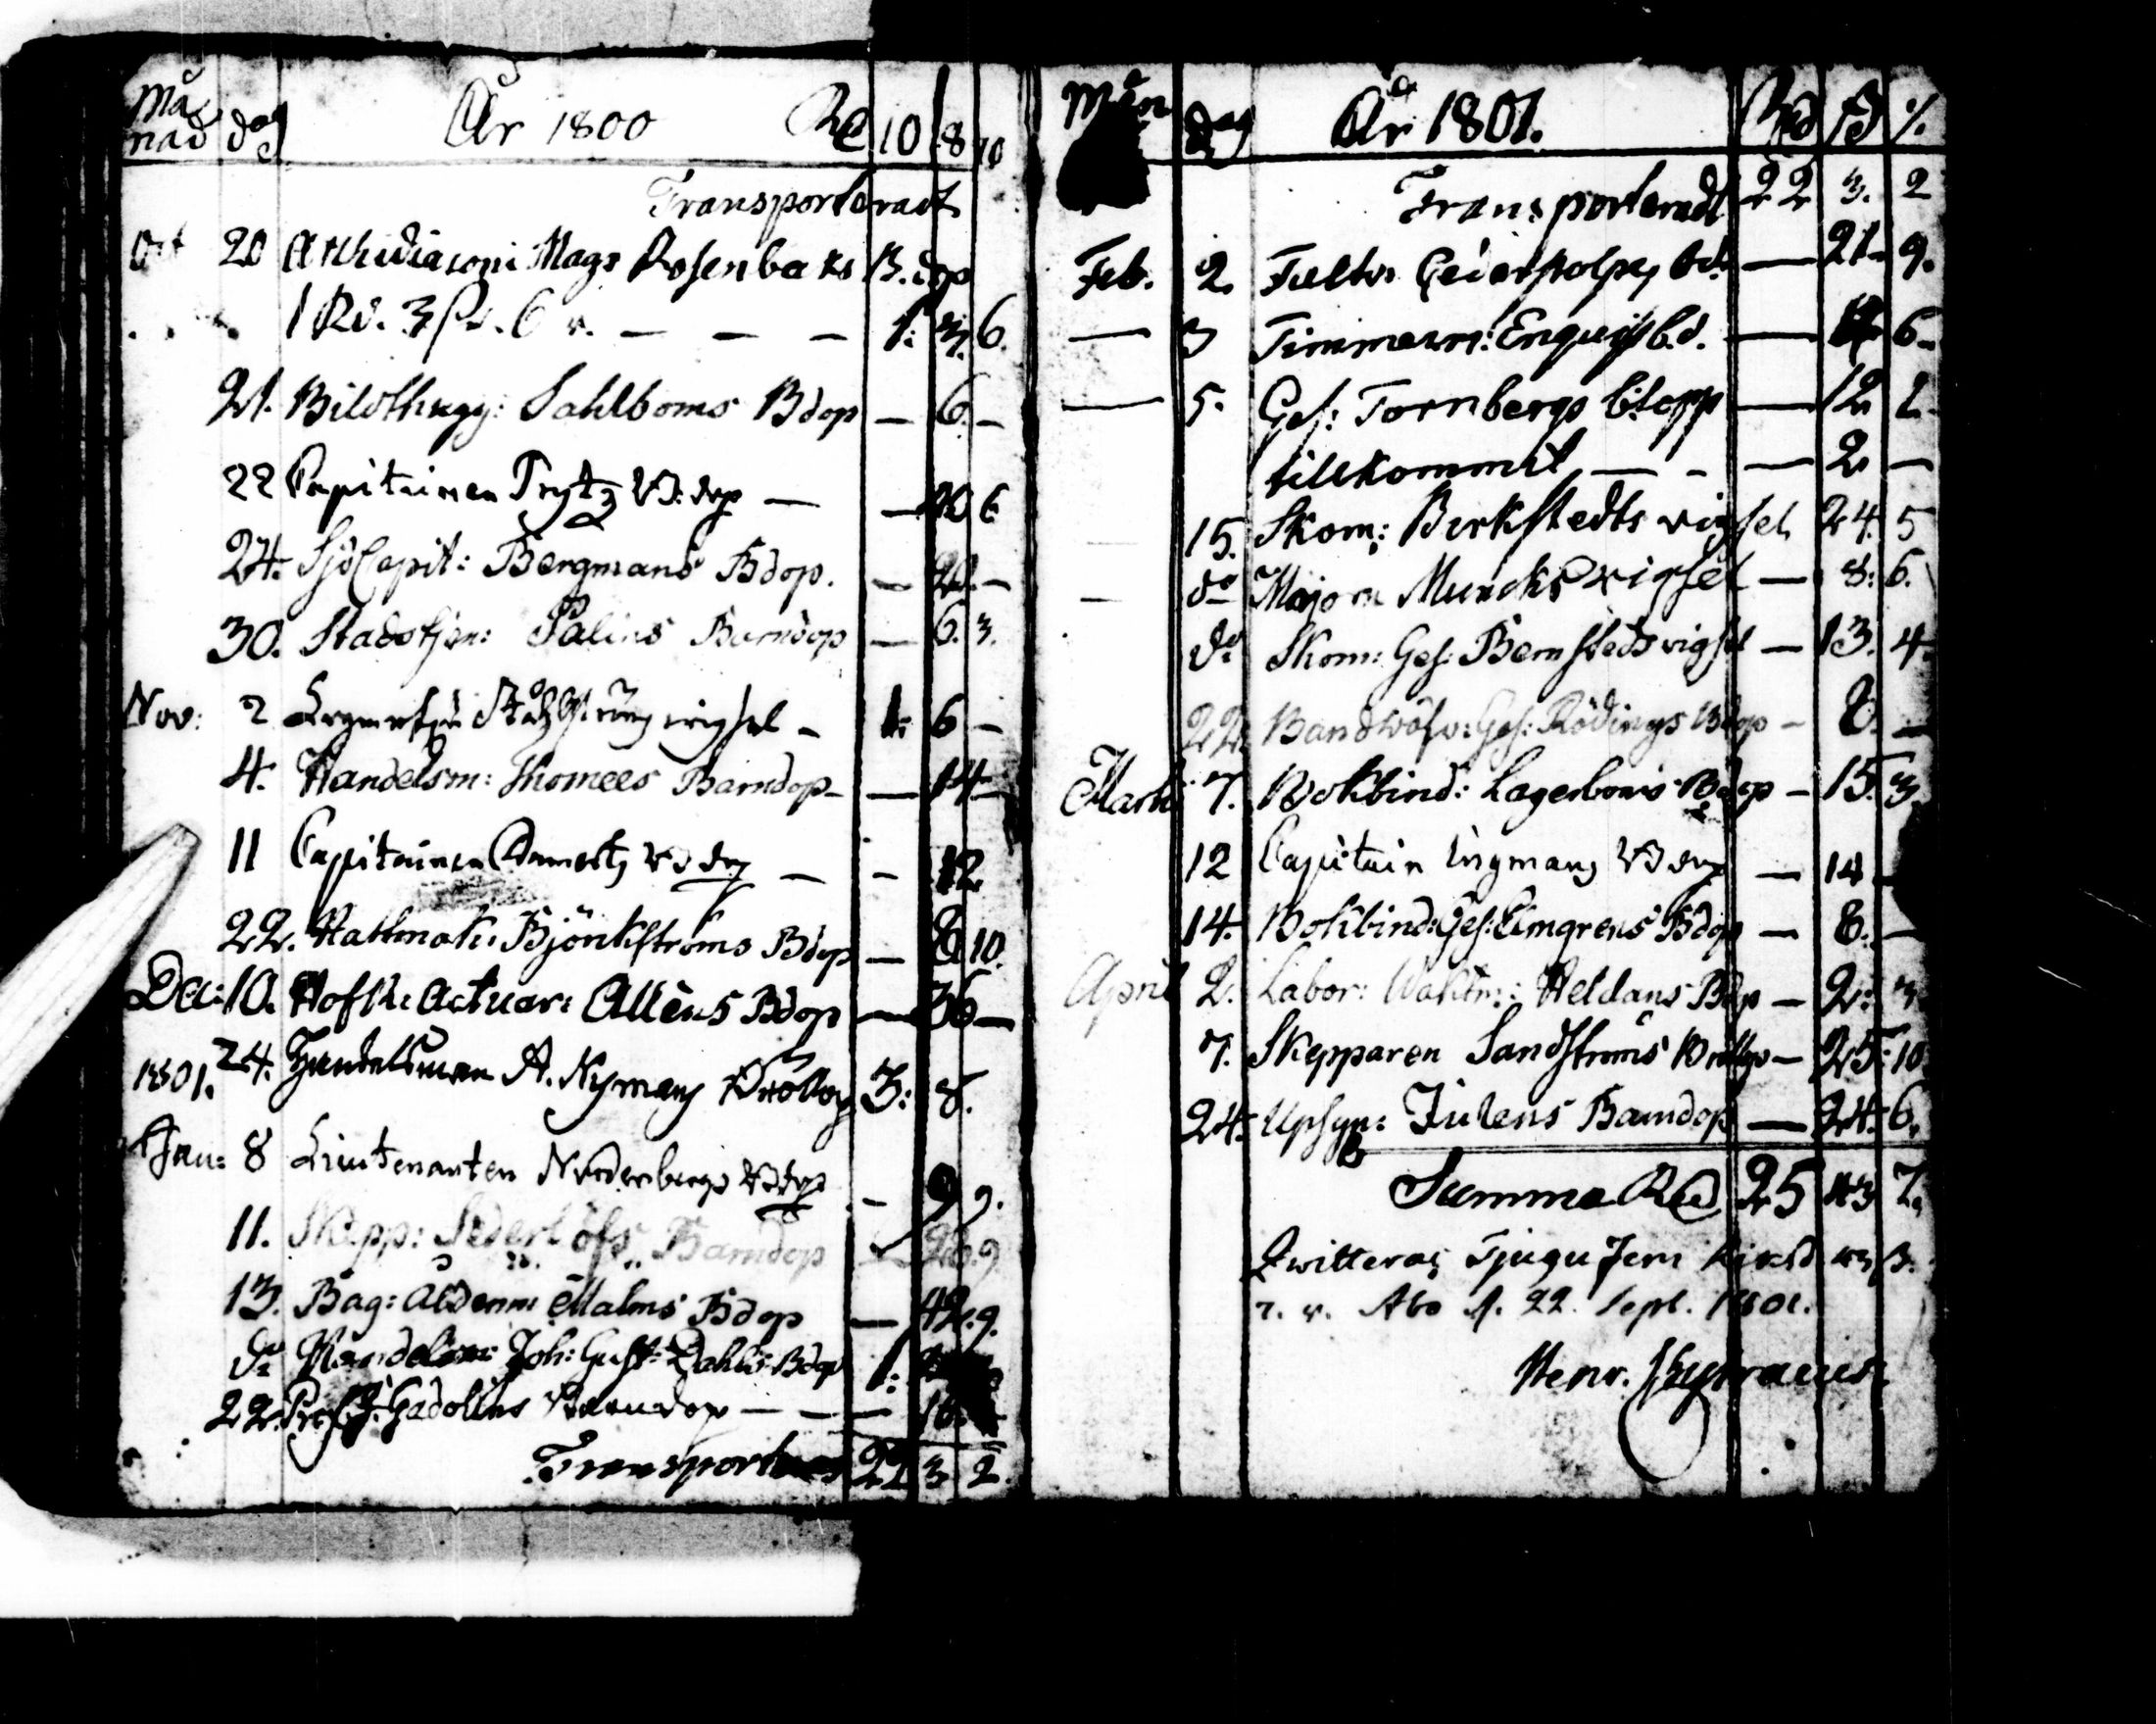 Må
nad dag År 1800 Rd 10 8 10
Transporteradt
Oct 20 Archidiaconi Mag: Rosenbaks B.dop
1 Rd. 3 ß. 6 r. — — — 1: 3. 6.
21. Bildthugg: Sahlboms Bdop — 6. —
22 Capitainen Prytz B:dop — — 20 6
24. SjöCapit: Bergmans Bdop. — —
30. Stadstjen: Palins Barndop — 6. 3.
Nov: 2 vigsel — 1: 6 —
4. Handelsm: Thomees Barndop — — 14 —
11 Capitainen Bdop — — 12
22. Hattmak: Björkströms Bdop — 8 10.
Dec: 10. Hofr: Actuar: Alléns Bdop — 36 —
1801. 24. Handelsman A. Nymans Bröllop 3: 8.
Jan: 8 Lieutenanten Nordenbergs Bdop — 9 9.
11. Skepp: Sederlöfs Barndop 9
13. Bag: Ålderm: Malms Bdop — 42. 9.
do Handelsm: Joh: Gust: Dahls Bdop 1:
22. Prof: J. Gadolins Barndop — — — 16.
Transporteras 22 3 2.
Mån dag År 1801. Rd ß r.
Transporteradt 22 3. 2
Feb. 2. bd: — 21. 9.
— 3 Timmerm: Enquists b.d. — 6.
— 5. Ges: Tornbergs b:dopp — 12
tillkommit — — — 2 —
15. Skom: Birkstedts vigsel 24. 5
— do Majorn Muncks vigsel — 8: 6.
do Skom: Ges: Bernstedts vigsel — 13. 4.
22. Ges: Rödings Bdop — 8. —
Martii 7. Bokbind: Lagerboms Bdop — 15. 3.
12 Capitain Ingmans Bdop — 14 —
14. Bokbind: Ges: Almgrens Bdop — 8. —
April 2. Labor: Vaktm: Heldans Bdop — 2: 3
7. Skepparen Sandströms Bröllop — 25: 10
24. Upsyn: Julens Barndop — 24. 6.
Summa Rd 25 43 7.
Qvitteras Tjugu fem Riksd 43 ß.
7. r. Åbo d. 22. Sept. 1801.
Henr.